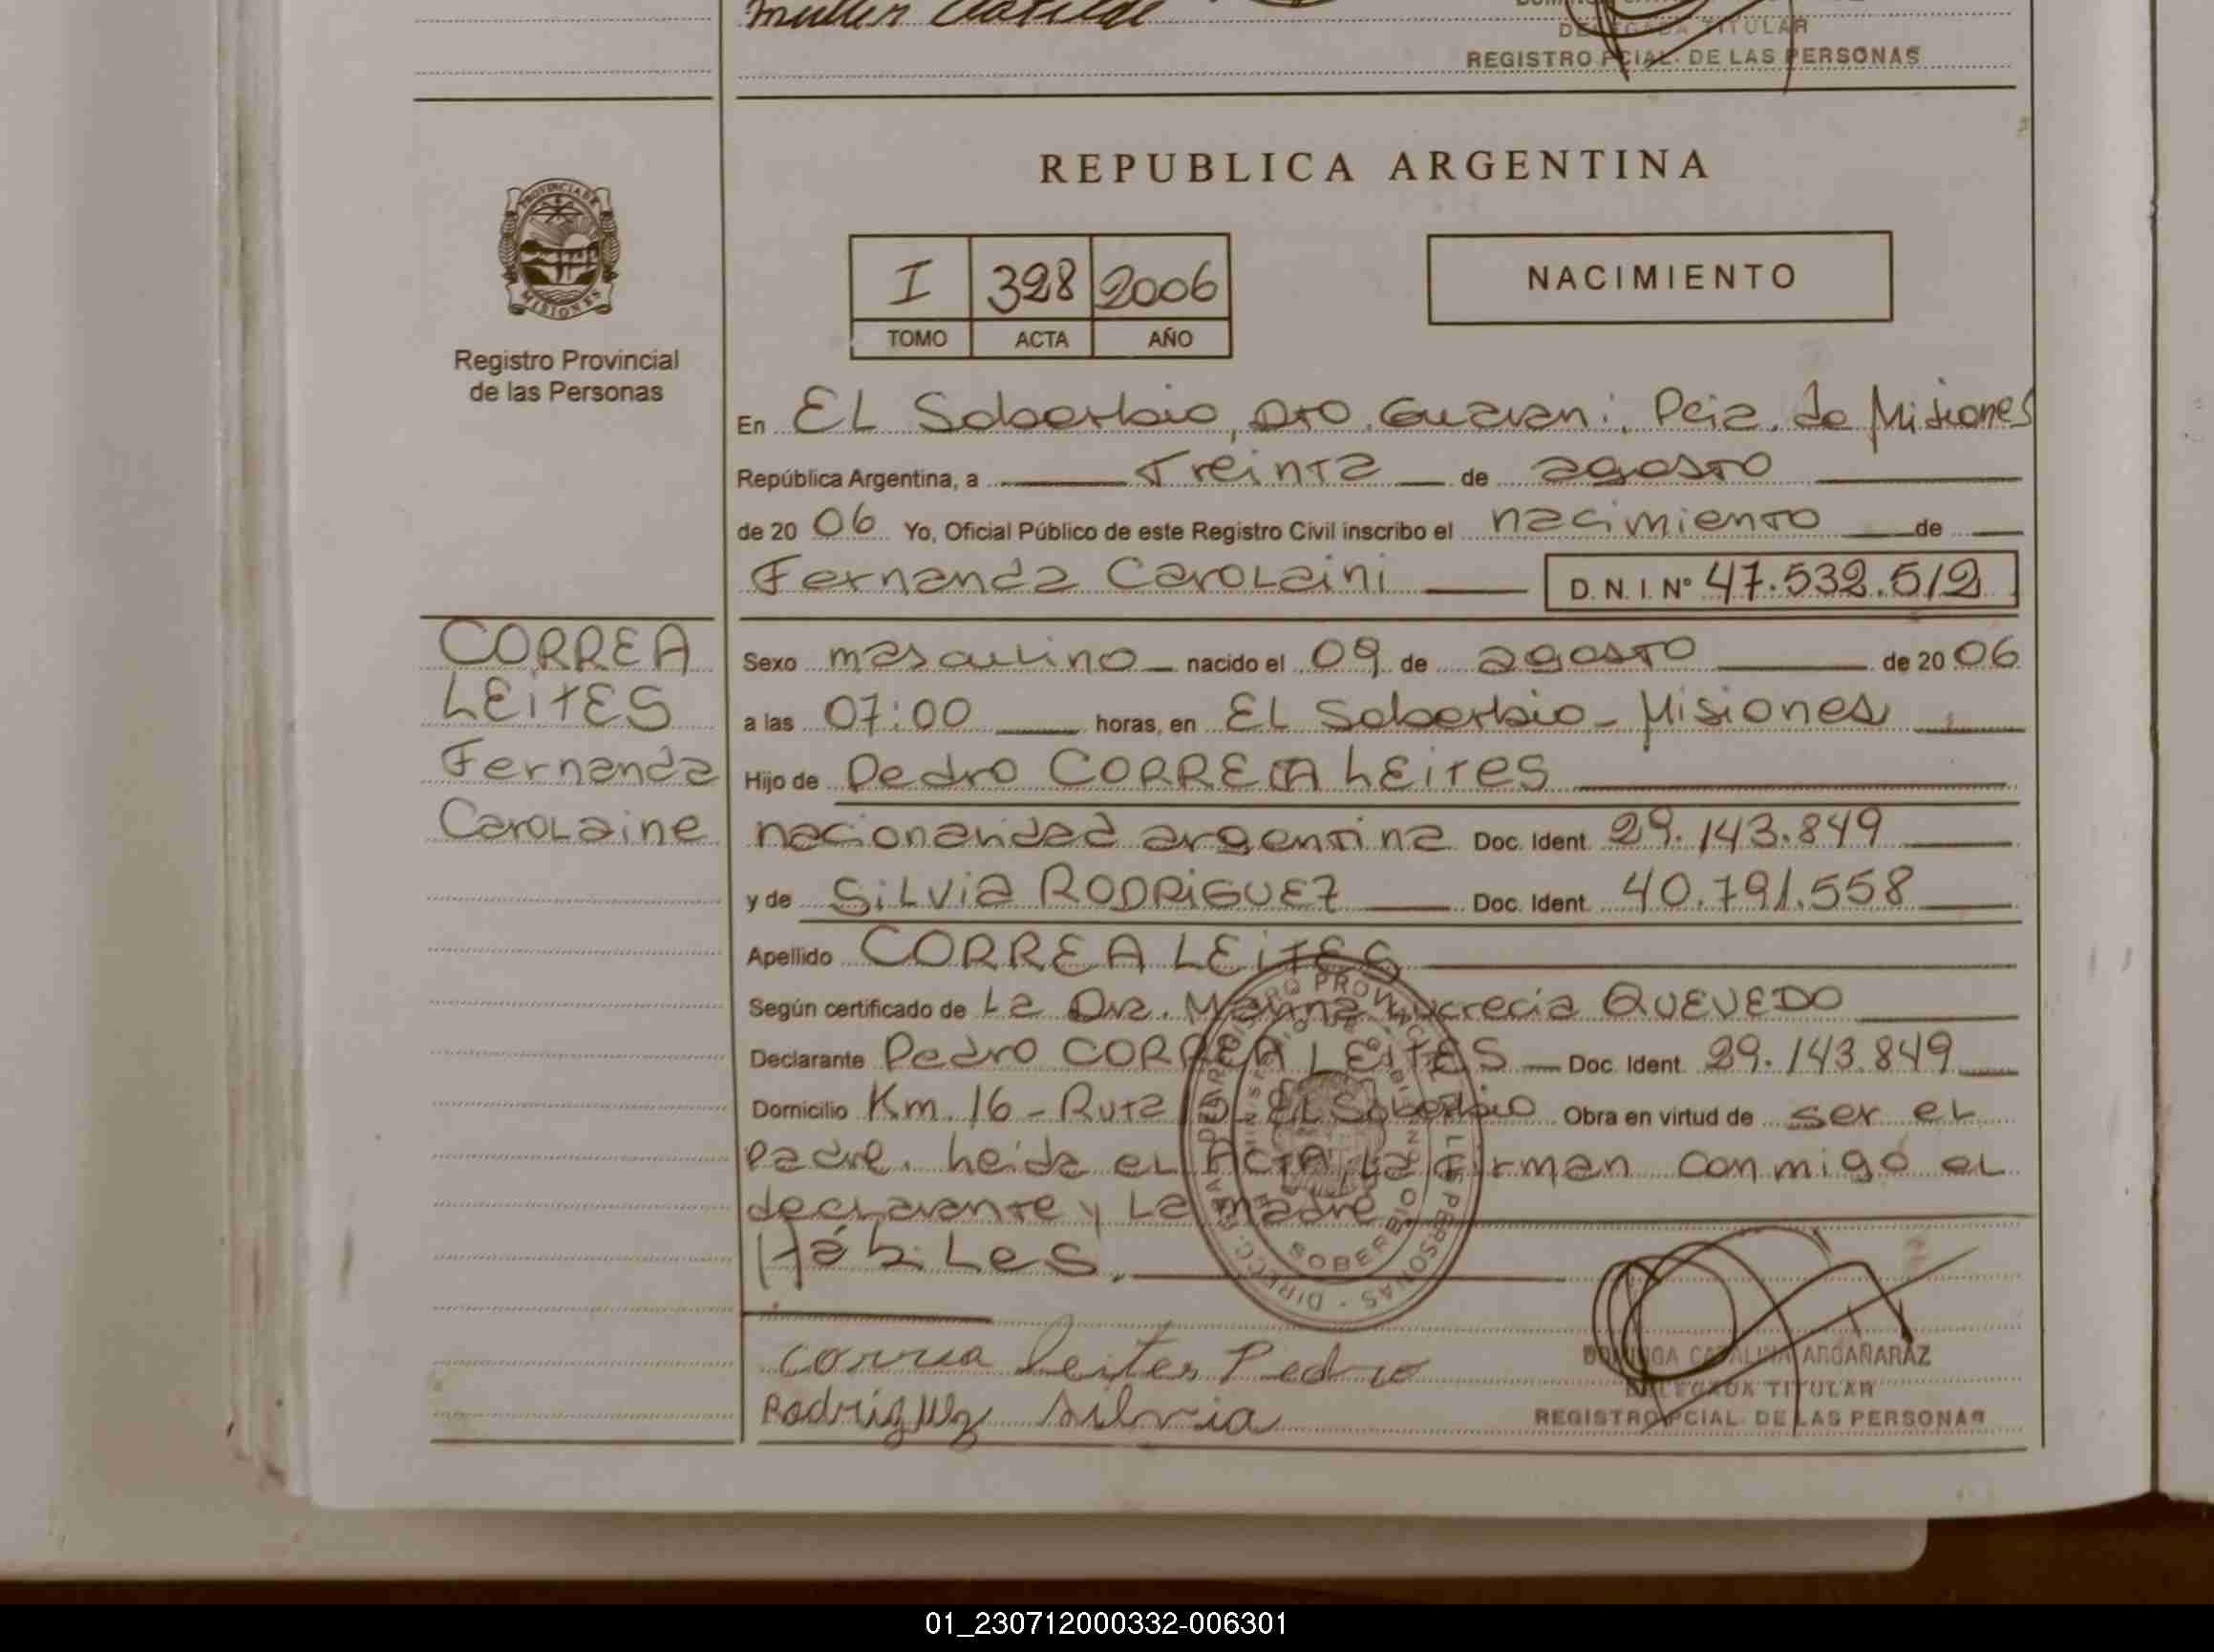 Muller Clotilde
DELEGADA TITULAR
REGISTRO PCIAL. DE LAS PERSONAS
PROVINCIA DE
MISIONES
Registro Provincial
de las Personas
REPUBLICA ARGENTINA
I 328 2006
TOMO ACTA AÑO
NACIMIENTO
En EL Soberbio, Dto. Guarani, Pcia. de Misiones
República Argentina, a Treinta de agosto
de 20 06 Yo, Oficial Público de este Registro Civil inscribo el nacimiento de
Fernanda Carolaini D. N. I. Nº 47.532.512
CORREA
LEITES
Fernanda
Carolaine
Sexo masculino nacido el 09 de agosto de 20 06
a las 07:00 horas, en EL Soberbio - Misiones
Hijo de Pedro CORREA LEITES
nacionalidad argentina Doc. Ident. 29.143.849
y de SILVIA RODRIGUEZ Doc. Ident. 40.791.558
Apellido CORREA LEITES
Según certificado de La Dra. Lucrecia QUEVEDO
Declarante Pedro CORREA LEITES Doc. Ident. 29.143.849
Domicilio Km. 16 - Ruta EL Soberbio Obra en virtud de ser el
padre. Leida el Acta, la firman conmigo el
declarante y La madre.
Hábiles.
Correa Leites Pedro
Rodriguez Silvia
DOMINGA CATALINA ARGAÑARAZ
DELEGADA TITULAR
REGISTRO PCIAL. DE LAS PERSONAS
01_230712000332-006301